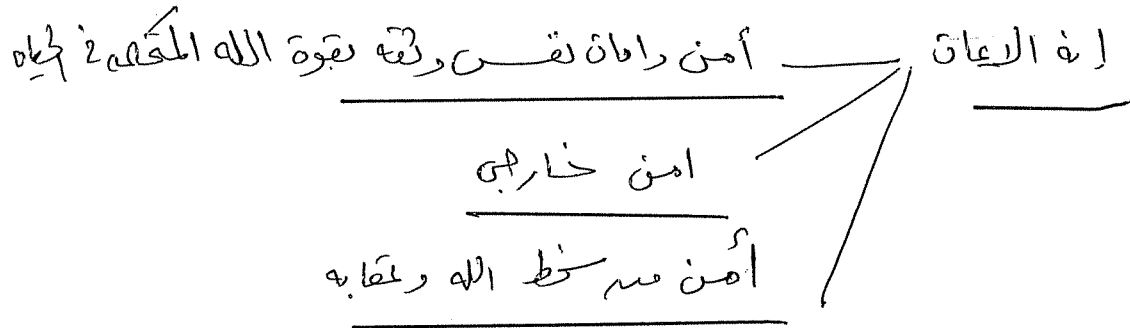 إنه الايمان — أمن وامان نفسى وثقه بقوة الله المتحكمه فى الحياه
امن خارجى
أمن من سخط الله وعقابه